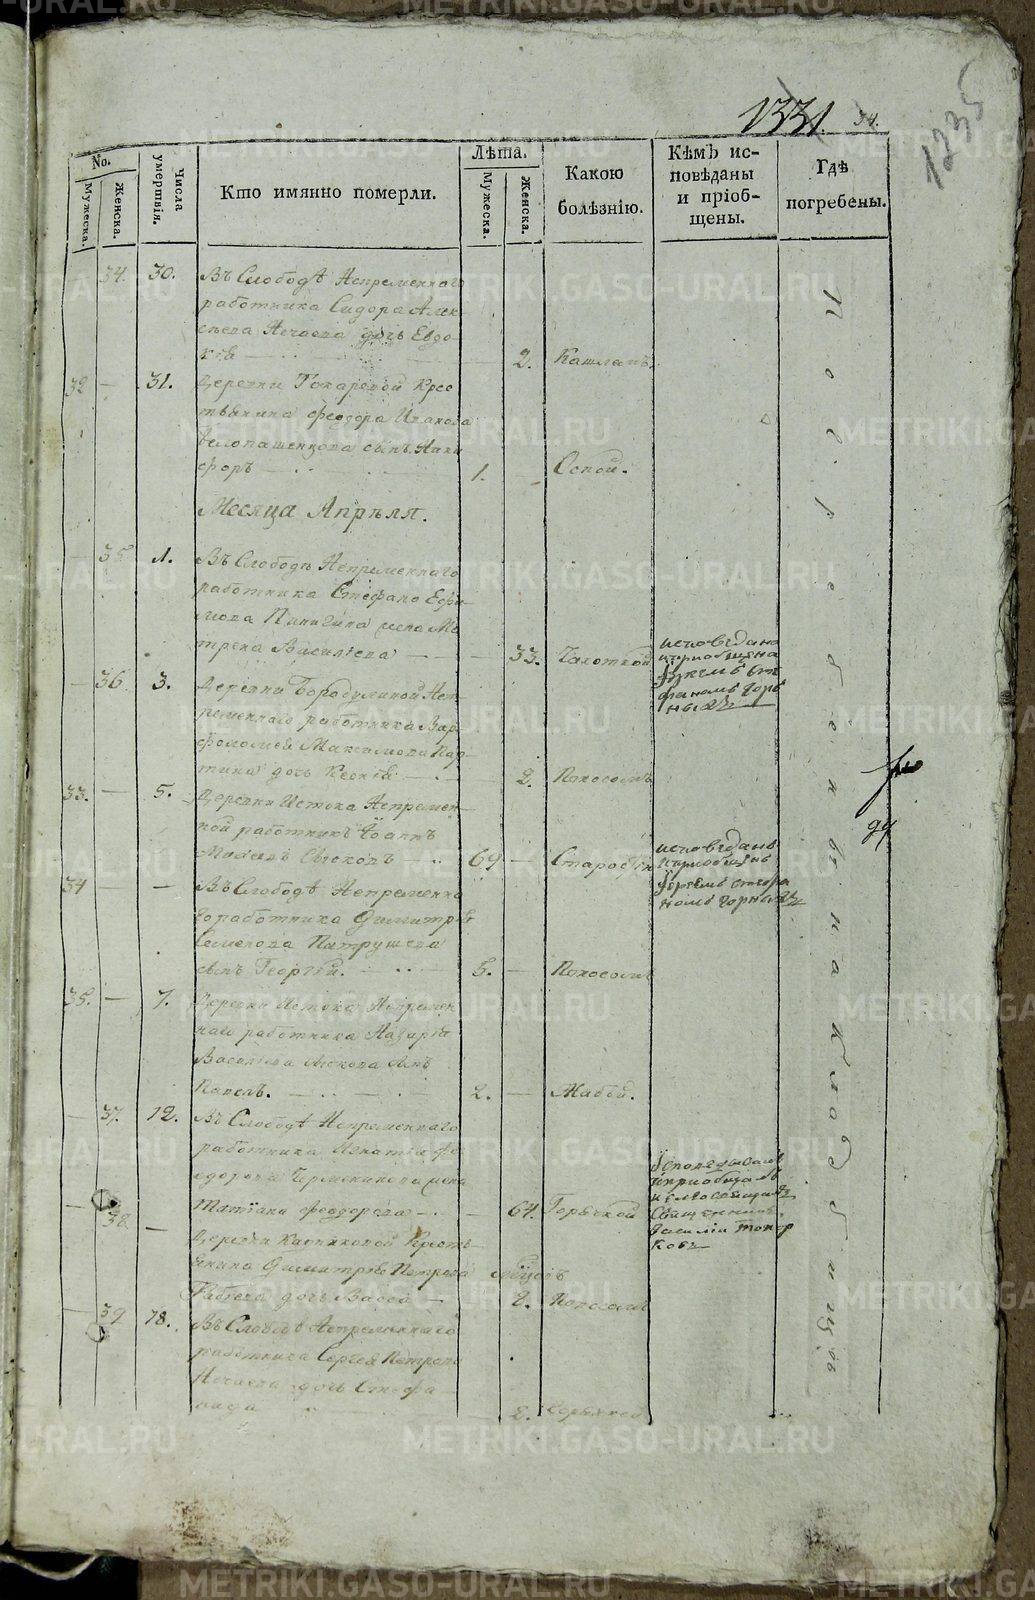 1331.
34.
1235
No.
Мужеска.
Женска.
Числа умертвія.
Кто имянно померли.
Лѣта.
Мужеска.
Женска.
Какою
болѣзнію.
Кѣмъ ис-
повѣданы
и пріоб-
щены.
Гдѣ
погребены.
34. 30. Въ Слободѣ Непременнаго
работника Сидора Алек-
сѣева Нечаева дочь Евдо-
кія 2. Кашлемъ
32 — 31. Деревни Токаревой Крес-
тьянина Феодора Иванова
сынъ Ники
форъ 1. Оспой.
Месяца Апрѣля.
35 1. Въ Слободѣ Непременнаго
работника Стефана Ефи-
мова Пинигина жена Ма
трена Васильева 33. Чахоткой
исповѣдана
и приобщена
Іереемъ Сте
фаномъ Горн
ныхъ
36 3. Деревни Бородулиной Неп-
ременнаго работника Вар
фоломея Максимова
дочь Ксенія 2. Поносомъ
33. — 5. Деревни Истока Непремен-
ной работникъ Іоаннъ
69 — Старостію
исповѣданъ
и приобщенъ
Іереемъ Стефа
номъ Горныхъ
34 — — Въ Слободѣ Непременна
го работника Димитрія
Семенова Патрушева
сынъ Георгій. 5. — Поносомъ
35. — 7. Деревни Истока Непремен
наго работника Назарія
Васильева сынъ
Павелъ. 2. — Жабой.
37. 12. Въ Слободѣ Непременнаго
работника Игнатія Фе
одорова жена
Татіана Феодорова 64. Горячкой
и приобщалъ
Священникъ
Василій Топор
ковъ
38. — Деревни Крестъ-
янина Димитрія Петрова
дочь Васса 2. Поносомъ
мѣсяцъ
39 18. Въ Слободѣ Непременнаго
работника Сергея Петрова
Нечаева дочь Стефа
нида 2.
Погребены на Кладбищѣ
METRIKI.GASO-URAL.RU